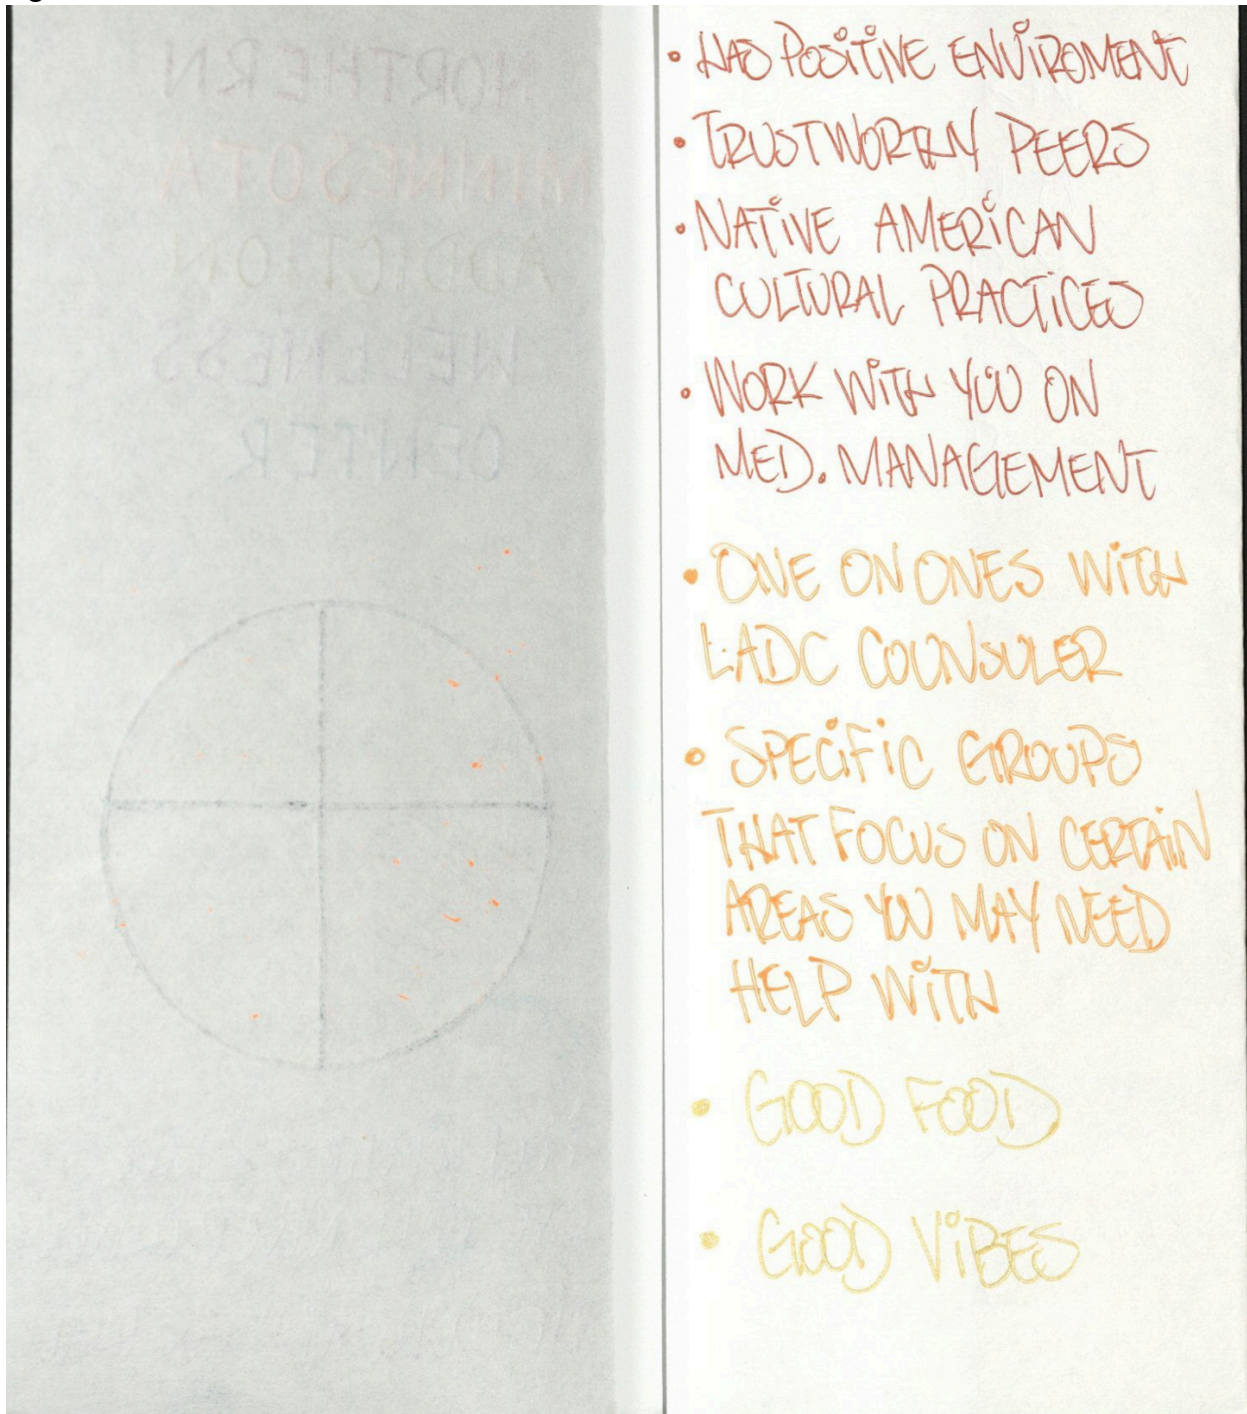 NORTHERN
MINNESOTA
ADDICTION
WELLNESS
CENTER
• HAS POSITIVE ENVIROMENT
• TRUSTWORTHY PEERS
• NATIVE AMERICAN
CULTURAL PRACTICES
• WORK WITH YOU ON
MED. MANAGEMENT
• ONE ON ONES WITH
LADC COUNSULER
• SPECIFIC GROUPS
THAT FOCUS ON CERTAIN
AREAS YOU MAY NEED
HELP WITH
• GOOD FOOD
• GOOD VIBES